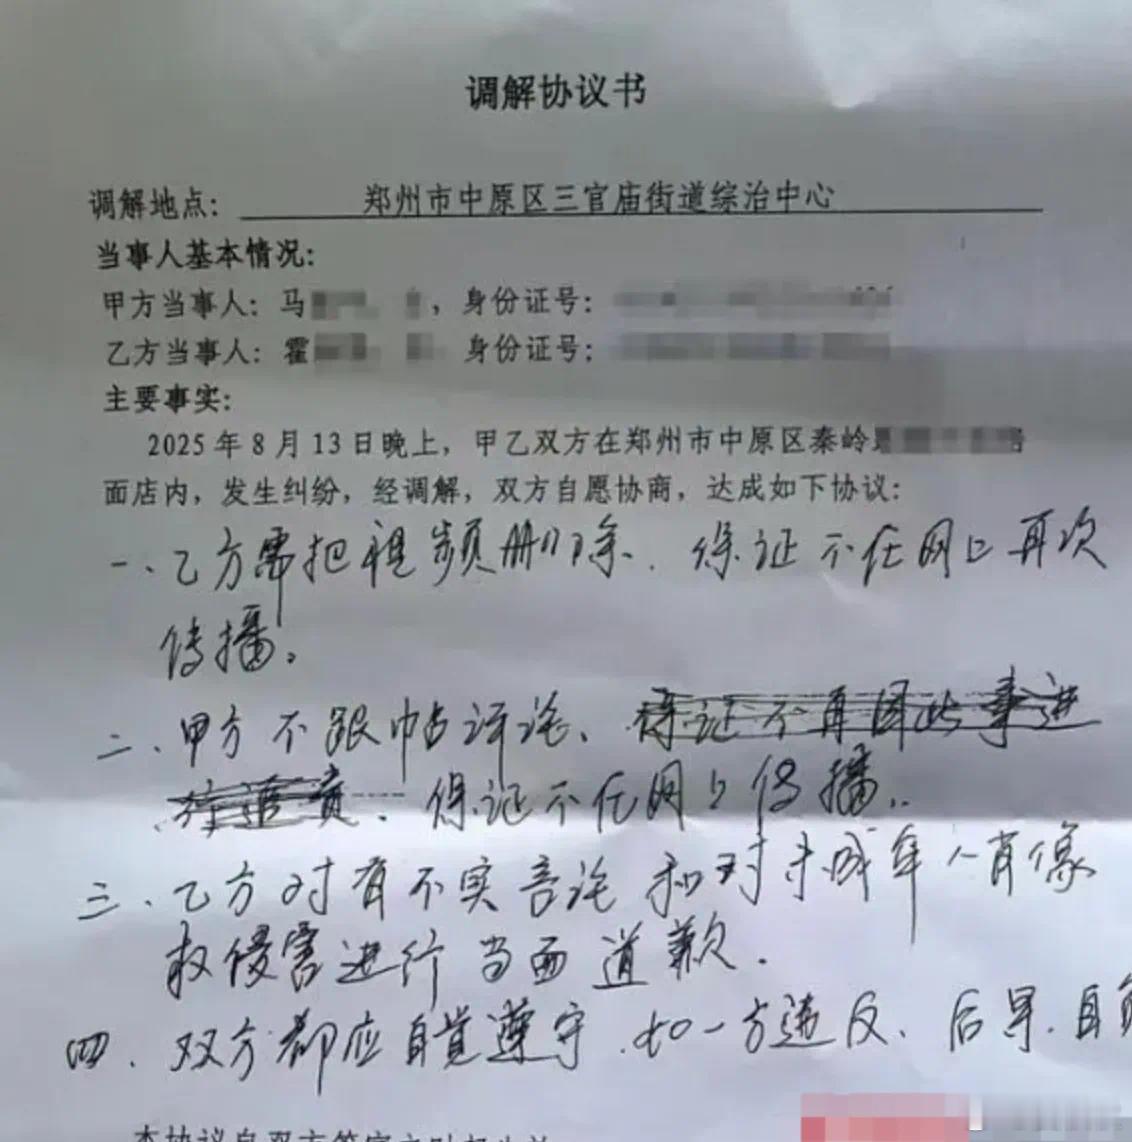 调解协议书
调解地点：郑州市中原区三官庙街道综治中心
当事人基本情况：
甲方当事人：马 ，身份证号：
乙方当事人：霍 身份证号：
主要事实：
2025年8月13日晚上，甲乙双方在郑州市中原区秦岭
面店内，发生纠纷，经调解，双方自愿协商，达成如下协议：
一、乙方需把视频删除、保证不在网上再次
传播。
二、甲方不跟帖评论、保证不再因此事进
行追责、保证不在网上传播。
三、乙方对有不实言论和对未成年人肖像
权侵害进行当面道歉.
四、双方都应自觉遵守.如一方违反、后果.自负
本协议自双方签字之时起生效